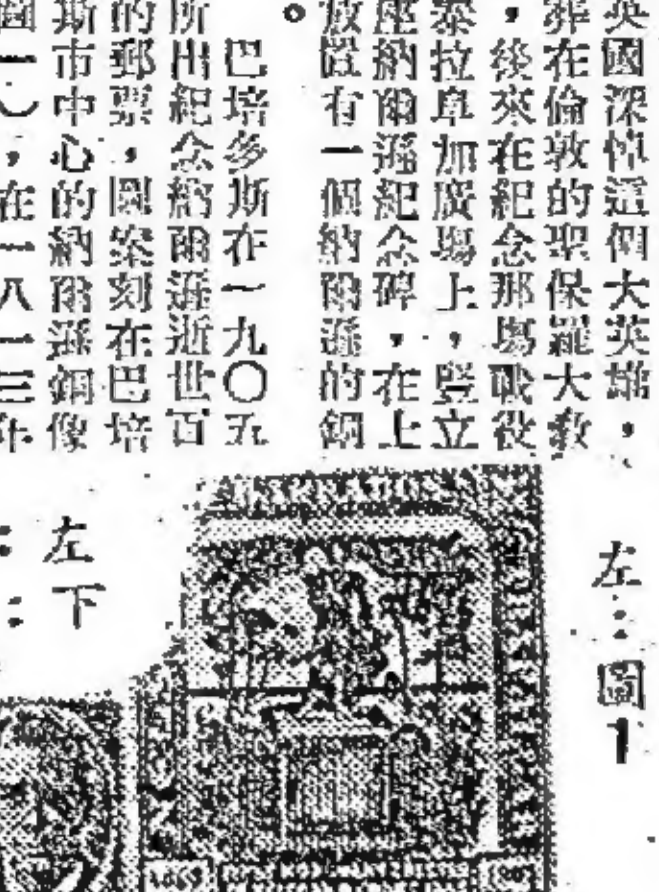 英國深悼這個大英雄，
葬在倫敦的聖保羅大教
，後來在紀念那場戰役
泰拉阜加廣場上，豎立
座納爾遜紀念碑，在上
放置有一個納爾遜的銅
。
巴培多斯在一九〇五
所出紀念納爾遜逝世百
的郵票，圖案刻在巴培
斯市中心的納爾遜銅像
圖一），在一八一三年
左：圖1
左下
BARBADOS